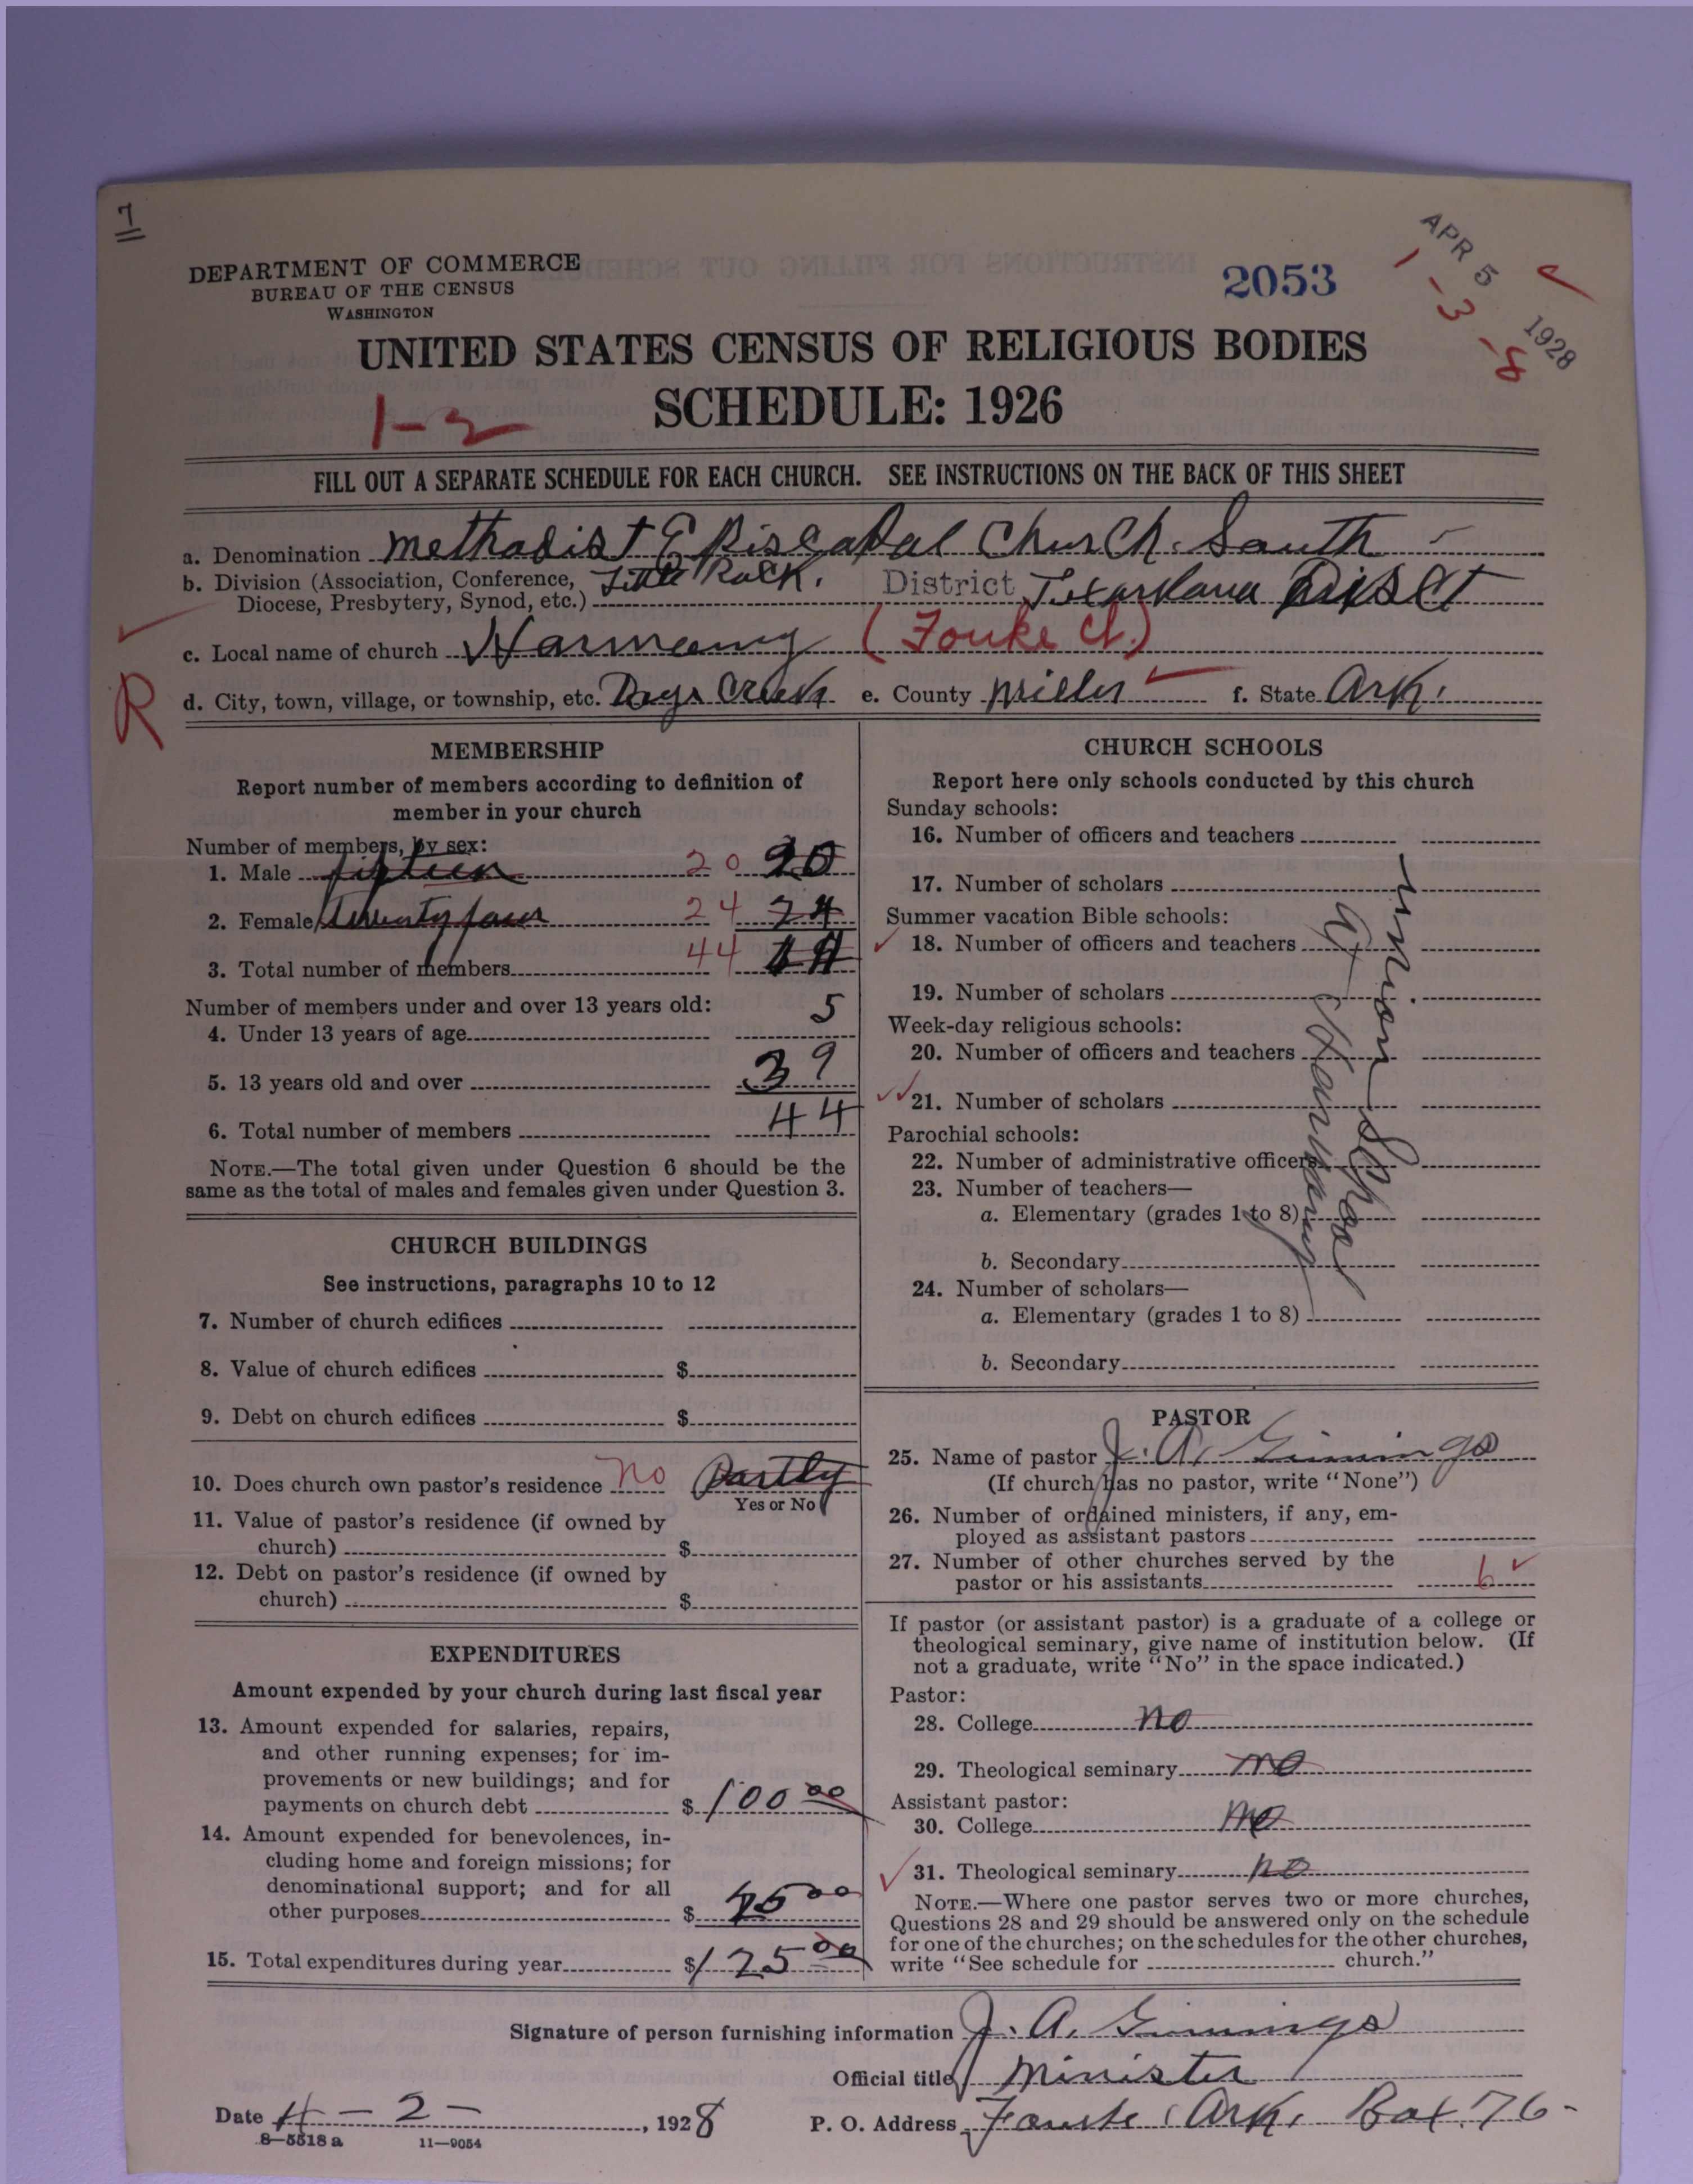 7
DEPARTMENT OF COMMERCE
BUREAU OF THE CENSUS
WASHINGTON
2053
APR 5 1928
1-3-8
UNITED STATES CENSUS OF RELIGIOUS BODIES
SCHEDULE: 1926
1-2
FILL OUT A SEPARATE SCHEDULE FOR EACH CHURCH. SEE INSTRUCTIONS ON THE BACK OF THIS SHEET
a. Denomination Methodist Episcopal Church. South
b. Division (Association, Conference, Little Rock. District Texarkana Dist
Diocese, Presbytery, Synod, etc.)
c. Local name of church Harmony (Fouke Ct.)
R
d. City, town, village, or township, etc. Days Creek e. County Miller f. State Ark.
MEMBERSHIP
Report number of members according to definition of
member in your church
Number of members, by sex:
1. Male fifteen 20 20
2. Female twenty four 24 24
3. Total number of members 44
Number of members under and over 13 years old:
4. Under 13 years of age 5
5. 13 years old and over 39
6. Total number of members 44
NOTE.—The total given under Question 6 should be the
same as the total of males and females given under Question 3.
CHURCH BUILDINGS
See instructions, paragraphs 10 to 12
7. Number of church edifices
8. Value of church edifices $
9. Debt on church edifices $
10. Does church own pastor's residence no Partly
Yes or No
11. Value of pastor's residence (if owned by
church) $
12. Debt on pastor's residence (if owned by
church) $
EXPENDITURES
Amount expended by your church during last fiscal year
13. Amount expended for salaries, repairs,
and other running expenses; for im-
provements or new buildings; and for
payments on church debt $ 100 00
14. Amount expended for benevolences, in-
cluding home and foreign missions; for
denominational support; and for all
other purposes $ 25 00
15. Total expenditures during year $ 125 00
CHURCH SCHOOLS
Report here only schools conducted by this church
Sunday schools:
16. Number of officers and teachers
17. Number of scholars
Summer vacation Bible schools:
18. Number of officers and teachers
19. Number of scholars
Week-day religious schools:
20. Number of officers and teachers
21. Number of scholars
Parochial schools:
22. Number of administrative officers
23. Number of teachers—
a. Elementary (grades 1 to 8)
b. Secondary
24. Number of scholars—
a. Elementary (grades 1 to 8)
b. Secondary
union School
at Harmony
PASTOR
25. Name of pastor J. A. Ginnings
(If church has no pastor, write "None")
26. Number of ordained ministers, if any, em-
ployed as assistant pastors
27. Number of other churches served by the
pastor or his assistants 6
If pastor (or assistant pastor) is a graduate of a college or
theological seminary, give name of institution below. (If
not a graduate, write "No" in the space indicated.)
Pastor:
28. College no
29. Theological seminary no
Assistant pastor:
30. College no
31. Theological seminary no
NOTE.—Where one pastor serves two or more churches,
Questions 28 and 29 should be answered only on the schedule
for one of the churches; on the schedules for the other churches,
write "See schedule for church."
Signature of person furnishing information J. A. Ginnings
Official title Minister
Date 4-2-, 1928 P. O. Address Fouke, Ark, Box. 76-
8-5518 a 11-9054